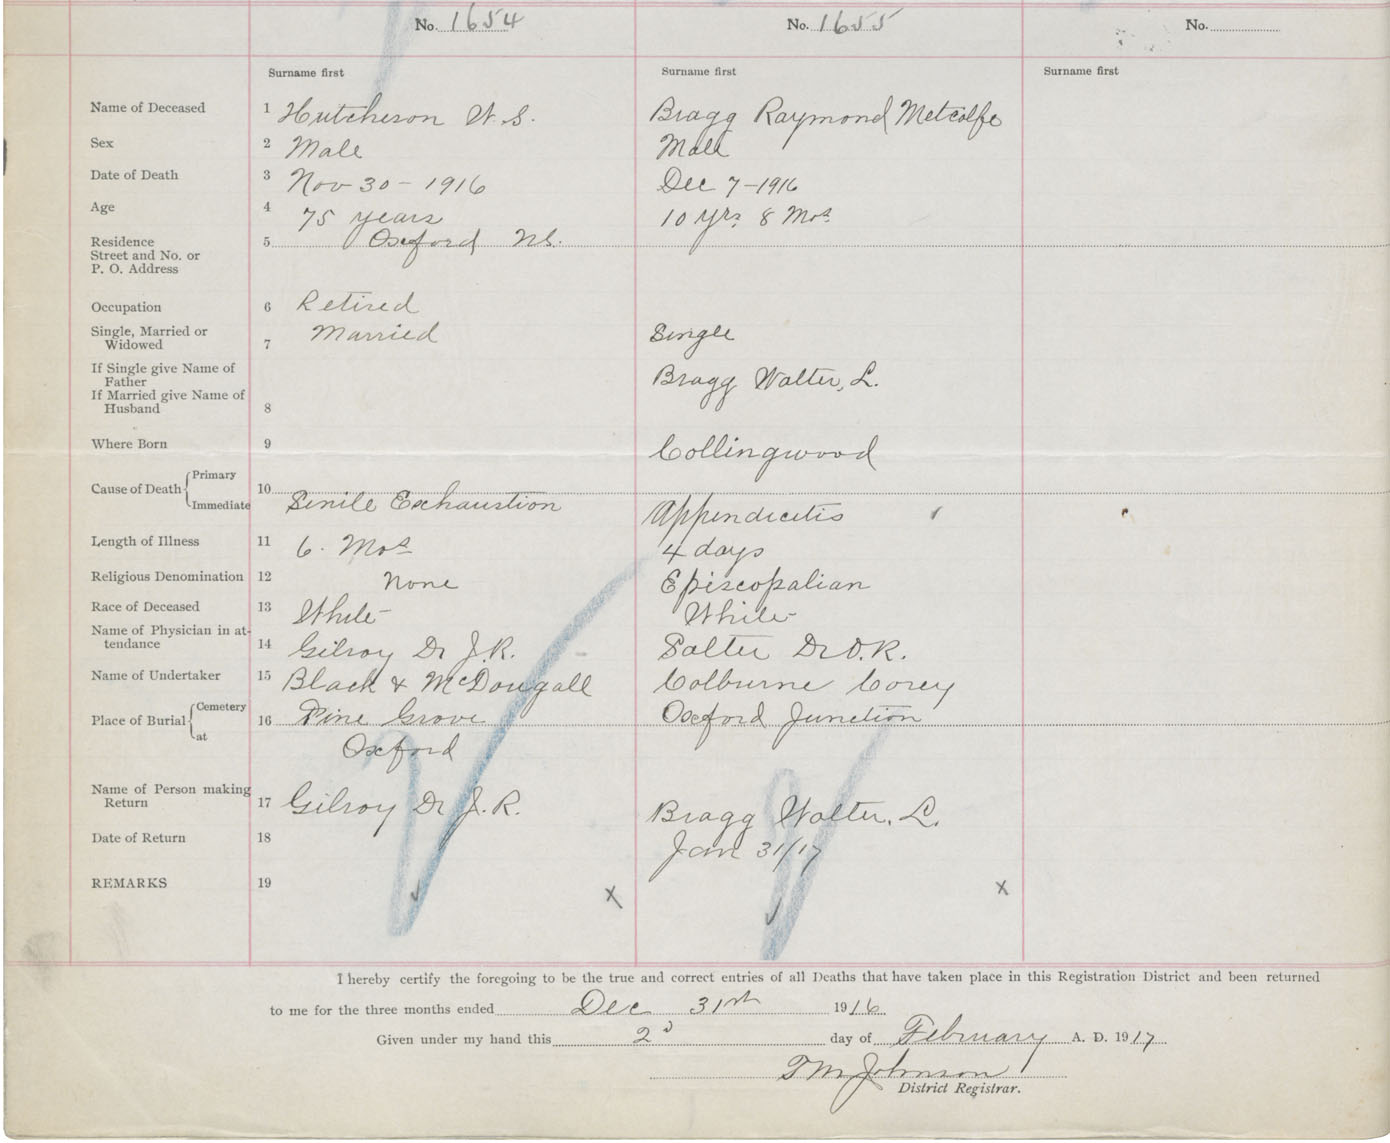 No. 1654 No. 1655 No.
Surname first Surname first Surname first
Name of Deceased 1 Hutcheson W. S. Bragg Raymond Metcalfe
Sex 2 Male Male
Date of Death 3 Nov 30 - 1916 Dec 7 - 1916
Age 4 75 years 10 yrs 8 Mos
Residence 5 Oxford N.S.
Street and No. or
P. O. Address
Occupation 6 Retired
Single, Married or Married Single
Widowed 7
If Single give Name of
Father Bragg Walter, L.
If Married give Name of
Husband 8
Where Born 9 Collingwood
Primary
Cause of Death 10
Immediate Senile Exhaustion Appendicitis
Length of Illness 11 6. Mos 4 days
Religious Denomination 12 None Episcopalian
Race of Deceased 13 White White
Name of Physician in at-
tendance 14 Gilroy Dr J. R. Salter Dr O. R.
Name of Undertaker 15 Black & McDougall Colburne Corey
Cemetery
Place of Burial 16 Pine Grove Oxford Junction
at Oxford
Name of Person making
Return 17 Gilroy Dr J. R. Bragg Walter, L.
Date of Return 18 Jan 31/17
REMARKS 19 x x
I hereby certify the foregoing to be the true and correct entries of all Deaths that have taken place in this Registration District and been returned
to me for the three months ended Dec 31st 1916
Given under my hand this 2d day of February A. D. 1917
T M Johnson
District Registrar.